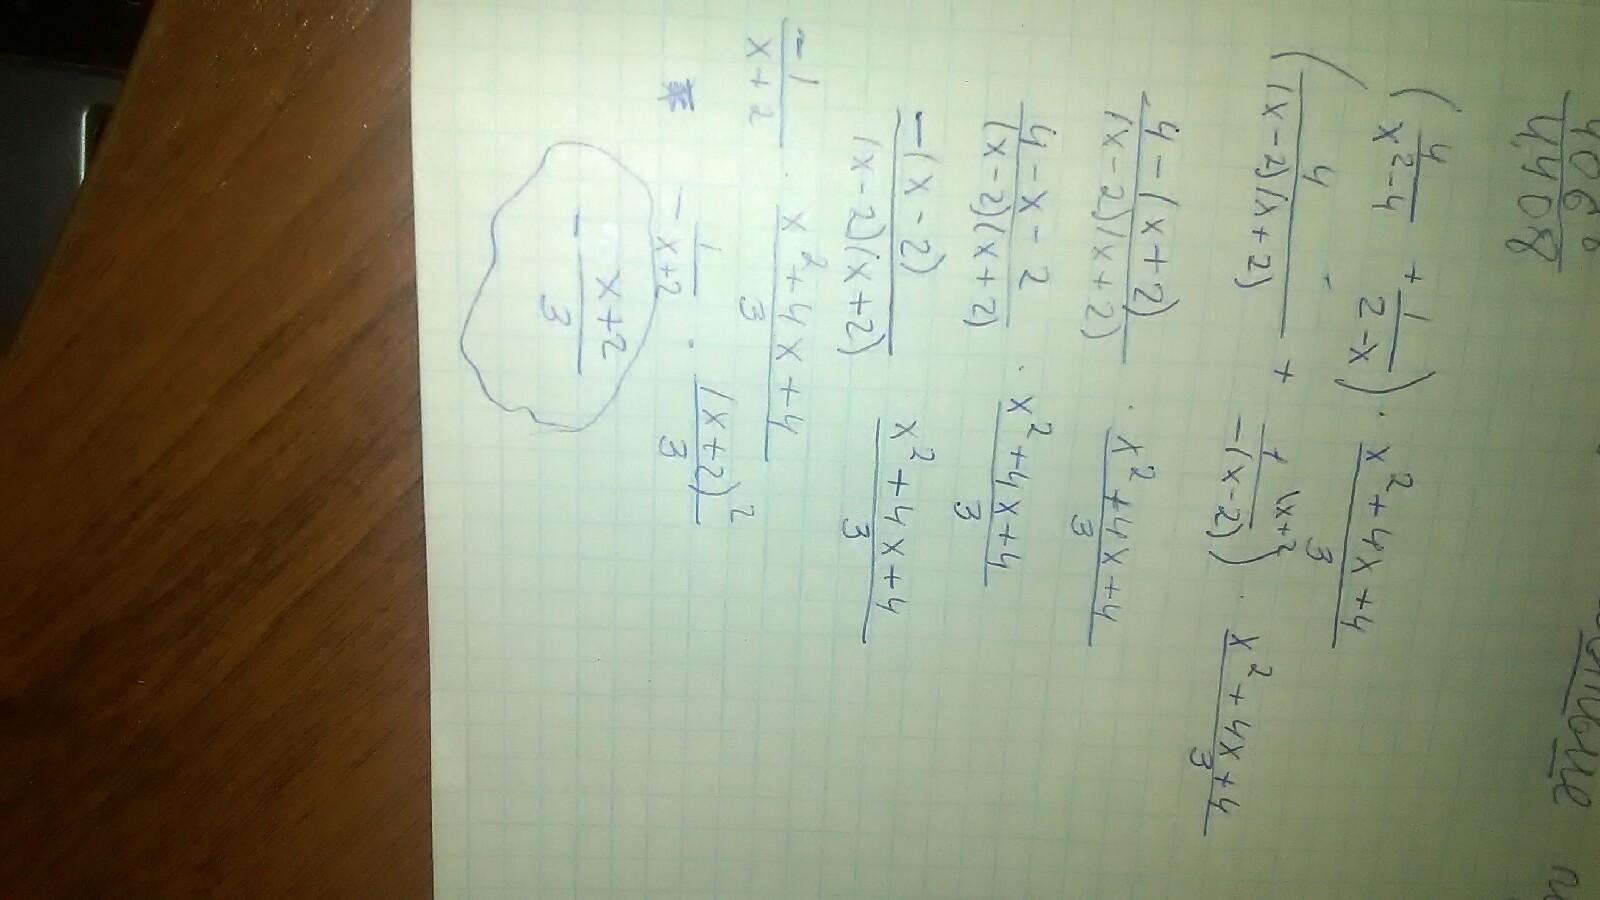 406
4,408
( 4/(x²-4) + 1/(2-x) ) · (x²+4x+4)/3
( 4/((x-2)(x+2)) + 1\x+2/(-(x-2)) ) · (x²+4x+4)/3
(4-(x+2))/((x-2)(x+2)) · (x²+4x+4)/3
(4-x-2)/((x-2)(x+2)) · (x²+4x+4)/3
(-(x-2))/((x-2)(x+2)) · (x²+4x+4)/3
(-1)/(x+2) · (x²+4x+4)/3
- 1/(x+2) · (x+2)²/3
- (x+2)/3